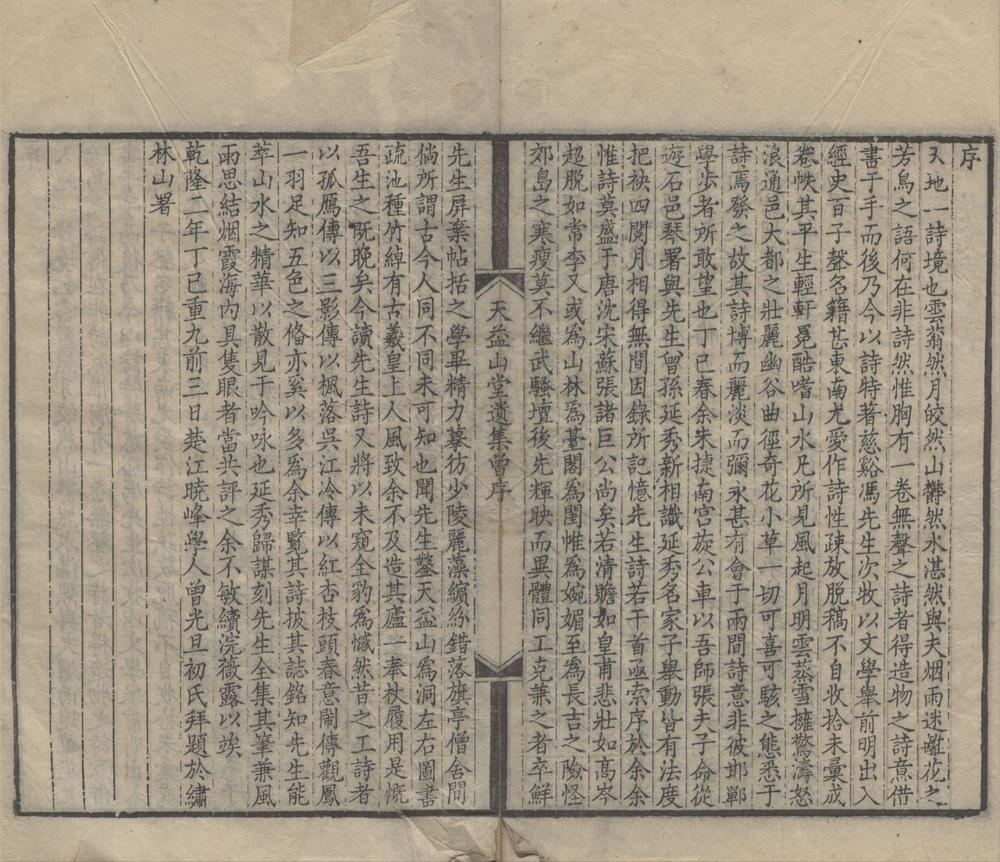 序
天地一詩境也雲蓊然月皎然山欝然水湛然與夫烟雨迷離花之
芳鳥之語何在非詩然惟胸有一卷無聲之詩者得造物之詩意借
書于手而後乃今以詩特著慈谿馮先生次牧以文學舉前明出入
經史百子聲名籍甚東南尤愛作詩性疎放脱稿不自收拾未彙成
卷帙其平生輕軒冕酷嗜山水凡所見風起月明雲蒸雪擁驚濤怒
浪通邑大都之壯麗幽谷曲徑奇花小草一切可喜可駭之態悉于
詩焉發之故其詩博而麗淡而彌永甚有會于兩間詩意非彼邯鄲
學步者所敢望也丁巳春余朱捷南宮旋公車以吾師張夫子命從
遊石邑琴署與先生曾孫延秀新相識延秀名家子舉動皆有法度
把袂四閱月相得無間因錄所記憶先生詩若干首亟索序於余余
惟詩莫盛于唐沈宋蘇張諸巨公尚矣若清贍如皇甫悲壯如高岑
超脱如常李又或為山林為臺閣為閨帷為婉媚至為長吉之險怪
郊島之寒瘦莫不繼武騷壇後先輝映而異體同工克兼之者卒鮮
天益山堂遺集曾序
先生屏棄帖括之學畢精力摹彷少陵麗藻繽紛錯落旗亭僧舍間
倘所謂古今人同不同未可知也聞先生鑿天益山為洞左右圖書
疏池種竹綽有古羲皇上人風致余不及造其廬一奉杖履用是慨
吾生之既晚矣今讀先生詩又將以未窺全豹為憾然昔之工詩者
以孤鴈傳以三影傳以楓落吳江冷傳以紅杏枝頭春意鬧傳觀鳳
一羽足知五色之備亦奚以多為余幸覽其詩披其誌銘知先生能
萃山水之精華以散見于吟咏也延秀歸謀刻先生全集其筆兼風
雨思結烟霞海内具隻眼者當共評之余不敏續浣薇露以竢
乾隆二年丁巳重九前三日楚江曉峰學人曾光旦初氏拜題於繡
林山署